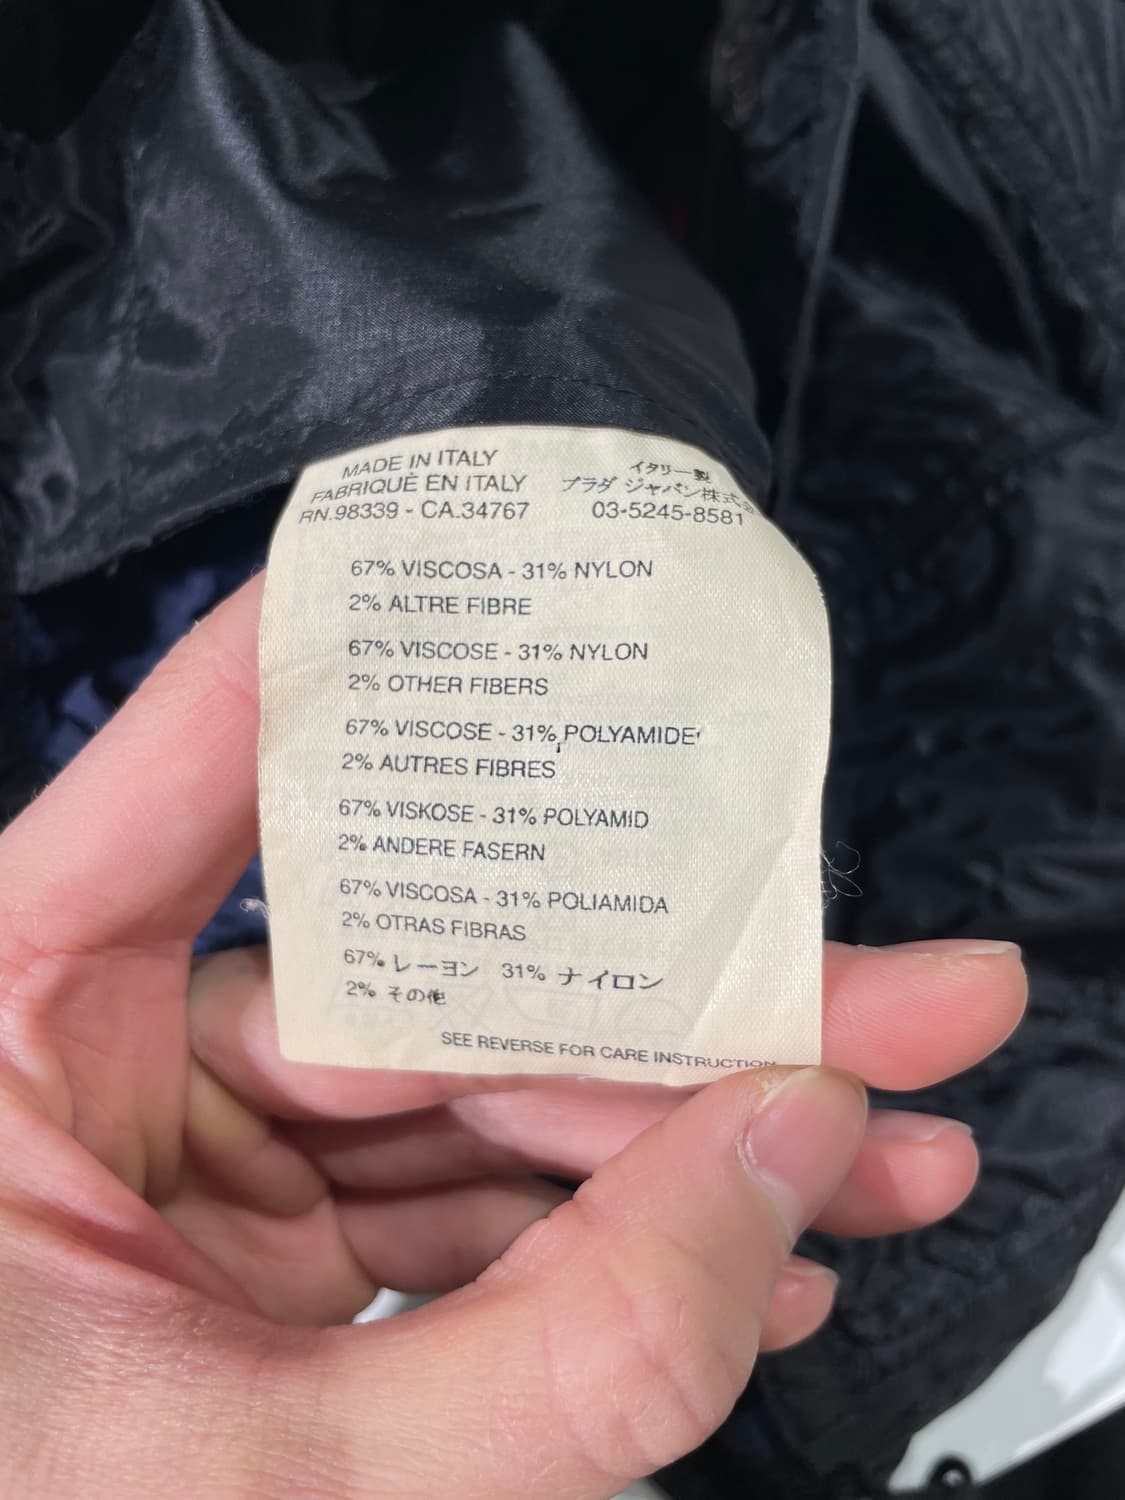 MADE IN ITALY
FABRIQUÈ EN ITALY
RN.98339 - CA.34767
イタリー製
プラダ ジャパン株式
03-5245-8581
67% VISCOSA - 31% NYLON
2% ALTRE FIBRE
67% VISCOSE - 31% NYLON
2% OTHER FIBERS
67% VISCOSE - 31% POLYAMIDE
2% AUTRES FIBRES
67% VISKOSE - 31% POLYAMID
2% ANDERE FASERN
67% VISCOSA - 31% POLIAMIDA
2% OTRAS FIBRAS
67% レーヨン 31% ナイロン
2% その他
SEE REVERSE FOR CARE INSTRUCTION